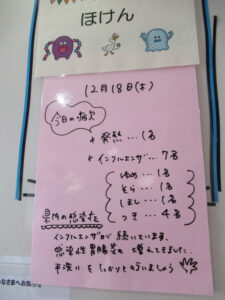 ほけん
12月18日(木)
今日の病欠
* 発熱…1名
* インフルエンザ…7名
ゆめ…1名
そら…1名
ほし…1名
つき…4名
県内の感染症
インフルエンザが続いています。
感染性胃腸炎も増えてきました。
手洗いをしっかりと行いましょう